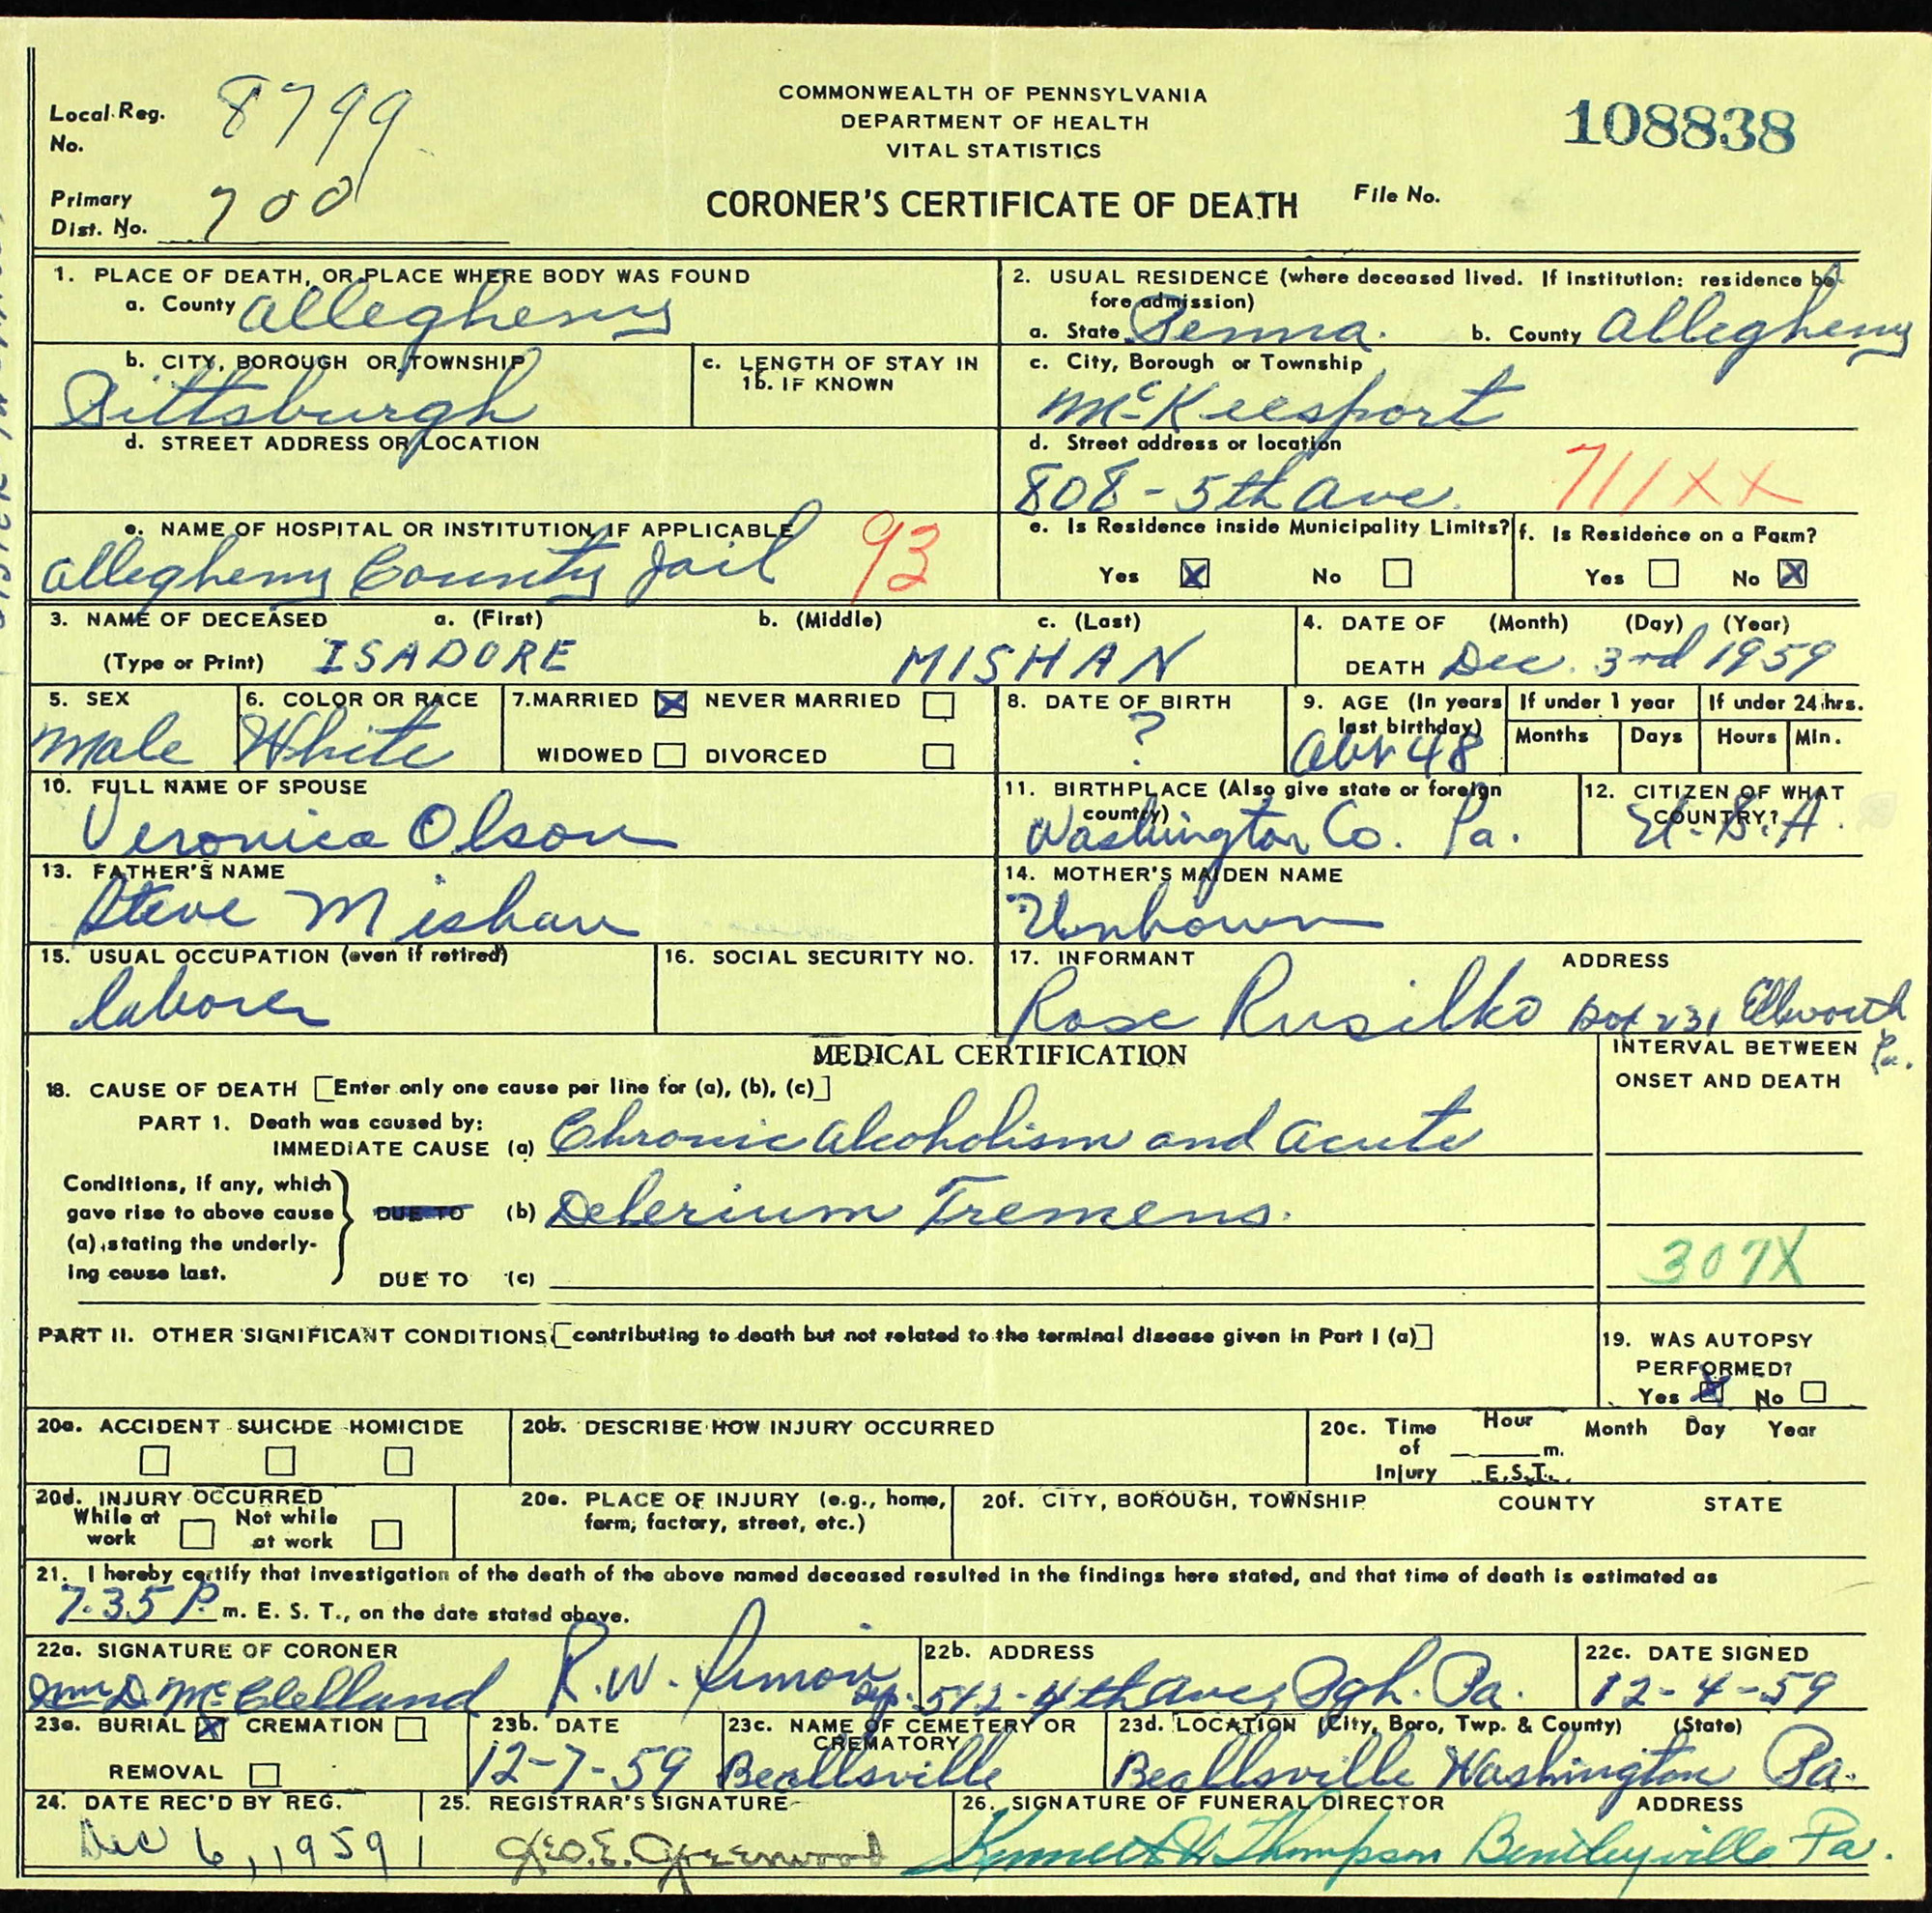 Local Reg. No. 8799
COMMONWEALTH OF PENNSYLVANIA
DEPARTMENT OF HEALTH
VITAL STATISTICS
108838
Primary Dist. No. 700
CORONER'S CERTIFICATE OF DEATH
File No.
1. PLACE OF DEATH, OR PLACE WHERE BODY WAS FOUND
a. County Allegheny
2. USUAL RESIDENCE (where deceased lived. If institution: residence be
fore admission)
a. State Penna. b. County Allegheny
b. CITY, BOROUGH OR TOWNSHIP
Pittsburgh
c. LENGTH OF STAY IN
1b. IF KNOWN
c. City, Borough or Township
McKeesport
d. STREET ADDRESS OR LOCATION
d. Street address or location
808 - 5th Ave. 711XX
e. NAME OF HOSPITAL OR INSTITUTION, IF APPLICABLE
Allegheny County Jail 93
e. Is Residence inside Municipality Limits?
Yes X No
f. Is Residence on a Farm?
Yes No X
3. NAME OF DECEASED a. (First) b. (Middle) c. (Last)
(Type or Print) ISADORE MISHAN
4. DATE OF (Month) (Day) (Year)
DEATH Dec. 3rd 1959
5. SEX
Male
6. COLOR OR RACE
White
7. MARRIED X NEVER MARRIED
WIDOWED DIVORCED
8. DATE OF BIRTH
?
9. AGE (In years
last birthday)
48
If under 1 year
Months Days
If under 24 hrs.
Hours Min.
10. FULL NAME OF SPOUSE
Veronica Olson
11. BIRTHPLACE (Also give state or foreign
country)
Washington Co. Pa.
12. CITIZEN OF WHAT
COUNTRY?
U.S.A.
13. FATHER'S NAME
Steve Mishan
14. MOTHER'S MAIDEN NAME
Unknown
15. USUAL OCCUPATION (even if retired)
laborer
16. SOCIAL SECURITY NO.
17. INFORMANT ADDRESS
Rose Rusilko Box 231 Ellworth Pa.
MEDICAL CERTIFICATION
INTERVAL BETWEEN
ONSET AND DEATH
18. CAUSE OF DEATH [Enter only one cause per line for (a), (b), (c)]
PART 1. Death was caused by:
IMMEDIATE CAUSE (a) Chronic alcoholism and acute
Conditions, if any, which
gave rise to above cause
(a), stating the underly-
ing cause last.
DUE TO (b) Delerium Tremens.
DUE TO (c)
307X
PART II. OTHER SIGNIFICANT CONDITIONS [contributing to death but not related to the terminal disease given in Part I (a)]
19. WAS AUTOPSY
PERFORMED?
Yes X No
20a. ACCIDENT SUICIDE HOMICIDE
20b. DESCRIBE HOW INJURY OCCURRED
20c. Time of Injury Hour m. E.S.T. Month Day Year
20d. INJURY OCCURRED
While at work Not while at work
20e. PLACE OF INJURY (e.g., home,
farm, factory, street, etc.)
20f. CITY, BOROUGH, TOWNSHIP COUNTY STATE
21. I hereby certify that investigation of the death of the above named deceased resulted in the findings here stated, and that time of death is estimated as
7:35 P. m. E. S. T., on the date stated above.
22a. SIGNATURE OF CORONER
Wm D. McClelland R.W. Simon Dep.
22b. ADDRESS
542 - 4th Ave, Pgh. Pa.
22c. DATE SIGNED
12-4-59
23a. BURIAL X CREMATION
REMOVAL
23b. DATE
12-7-59
23c. NAME OF CEMETERY OR
CREMATORY
Beallsville
23d. LOCATION (City, Boro, Twp. & County) (State)
Beallsville Washington Pa.
24. DATE REC'D BY REG.
Dec 6, 1959
25. REGISTRAR'S SIGNATURE
Geo. E. Greenwood
26. SIGNATURE OF FUNERAL DIRECTOR ADDRESS
Kenneth W Thompson Bentleyville Pa.